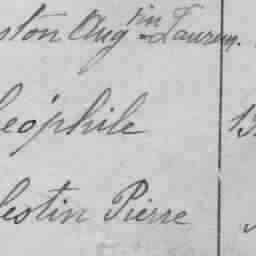 ston Aug^in Lauren.
éophile 13
lestin Pierre